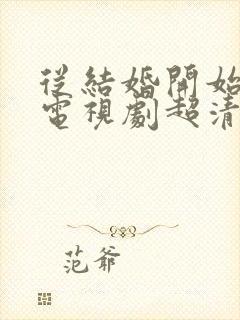 從結婚開始
電視劇超清
范爺